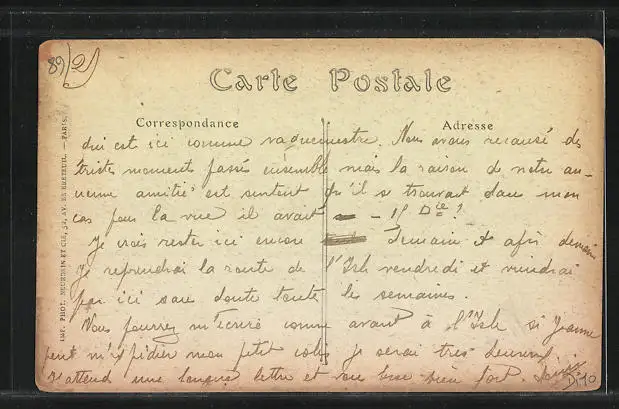 89/2
Carte Postale
Correspondance
Adresse
IMP. PHOT. NEURDEIN ET CIE, 52, AV. DE BRETEUIL. — PARIS.
qui est ici comme vaguemestre. Nous avons recausé des
tristes moments passés ensemble mais la raison de notre an-
cienne amitié est surtout qu'il se trouvait dans mon
cas pour la vue il avait
Je vais rester ici encore demain et après demain
Je reprendrai la route de l'Isle vendredi et viendrai
par ici sans doute toutes les semaines.
Vous pourrez m'écrire comme avant à l'Isle si Jeanne
peut m'expédier mon petit colis je serai très heureux.
J'attend une longue lettre et vous bise bien fort.